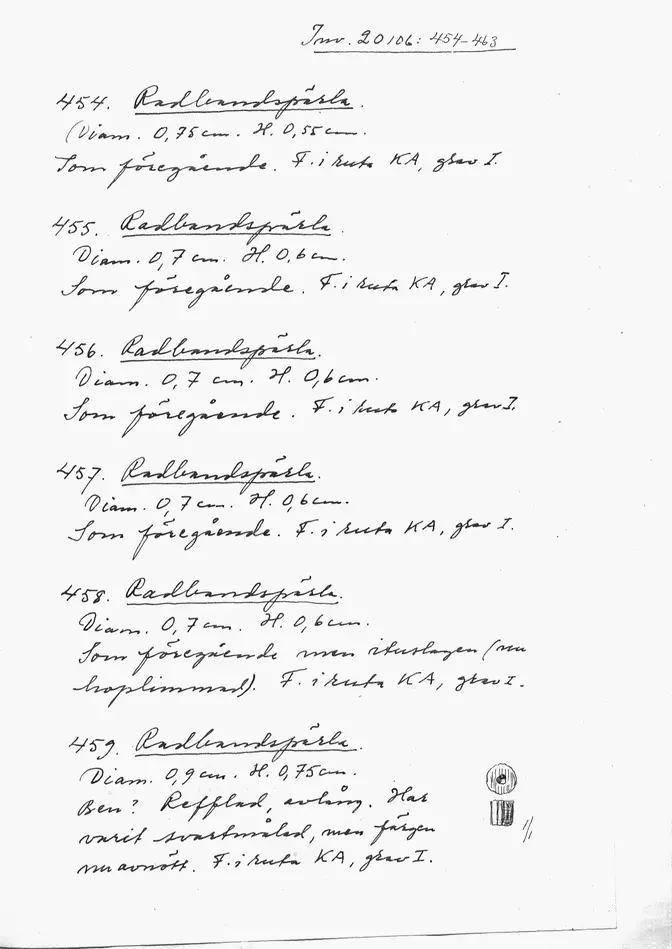 Inv. 20106: 454-463
454. Radbandspärla.
(Diam. 0,75 cm. H. 0,55 cm.
Som föregående. F. i ruta KA, grav I.
455. Radbandspärla.
Diam. 0,7 cm. H. 0,6 cm.
Som föregående. F. i ruta KA, grav I.
456. Radbandspärla.
Diam. 0,7 cm. H. 0,6 cm.
Som föregående. F. i ruta KA, grav I.
457. Radbandspärla.
Diam. 0,7 cm. H. 0,6 cm.
Som föregående. F. i ruta KA, grav I.
458. Radbandspärla.
Diam. 0,7 cm. H. 0,6 cm.
Som föregående men ituslagen (nu
hoplimmad). F. i ruta KA, grav I.
459. Radbandspärla.
Diam. 0,9 cm. H. 0,75 cm.
Ben? Refflad, avlång. Har
varit svartmålad, men färgen
nu avnött. F. i ruta KA, grav I.
1/1